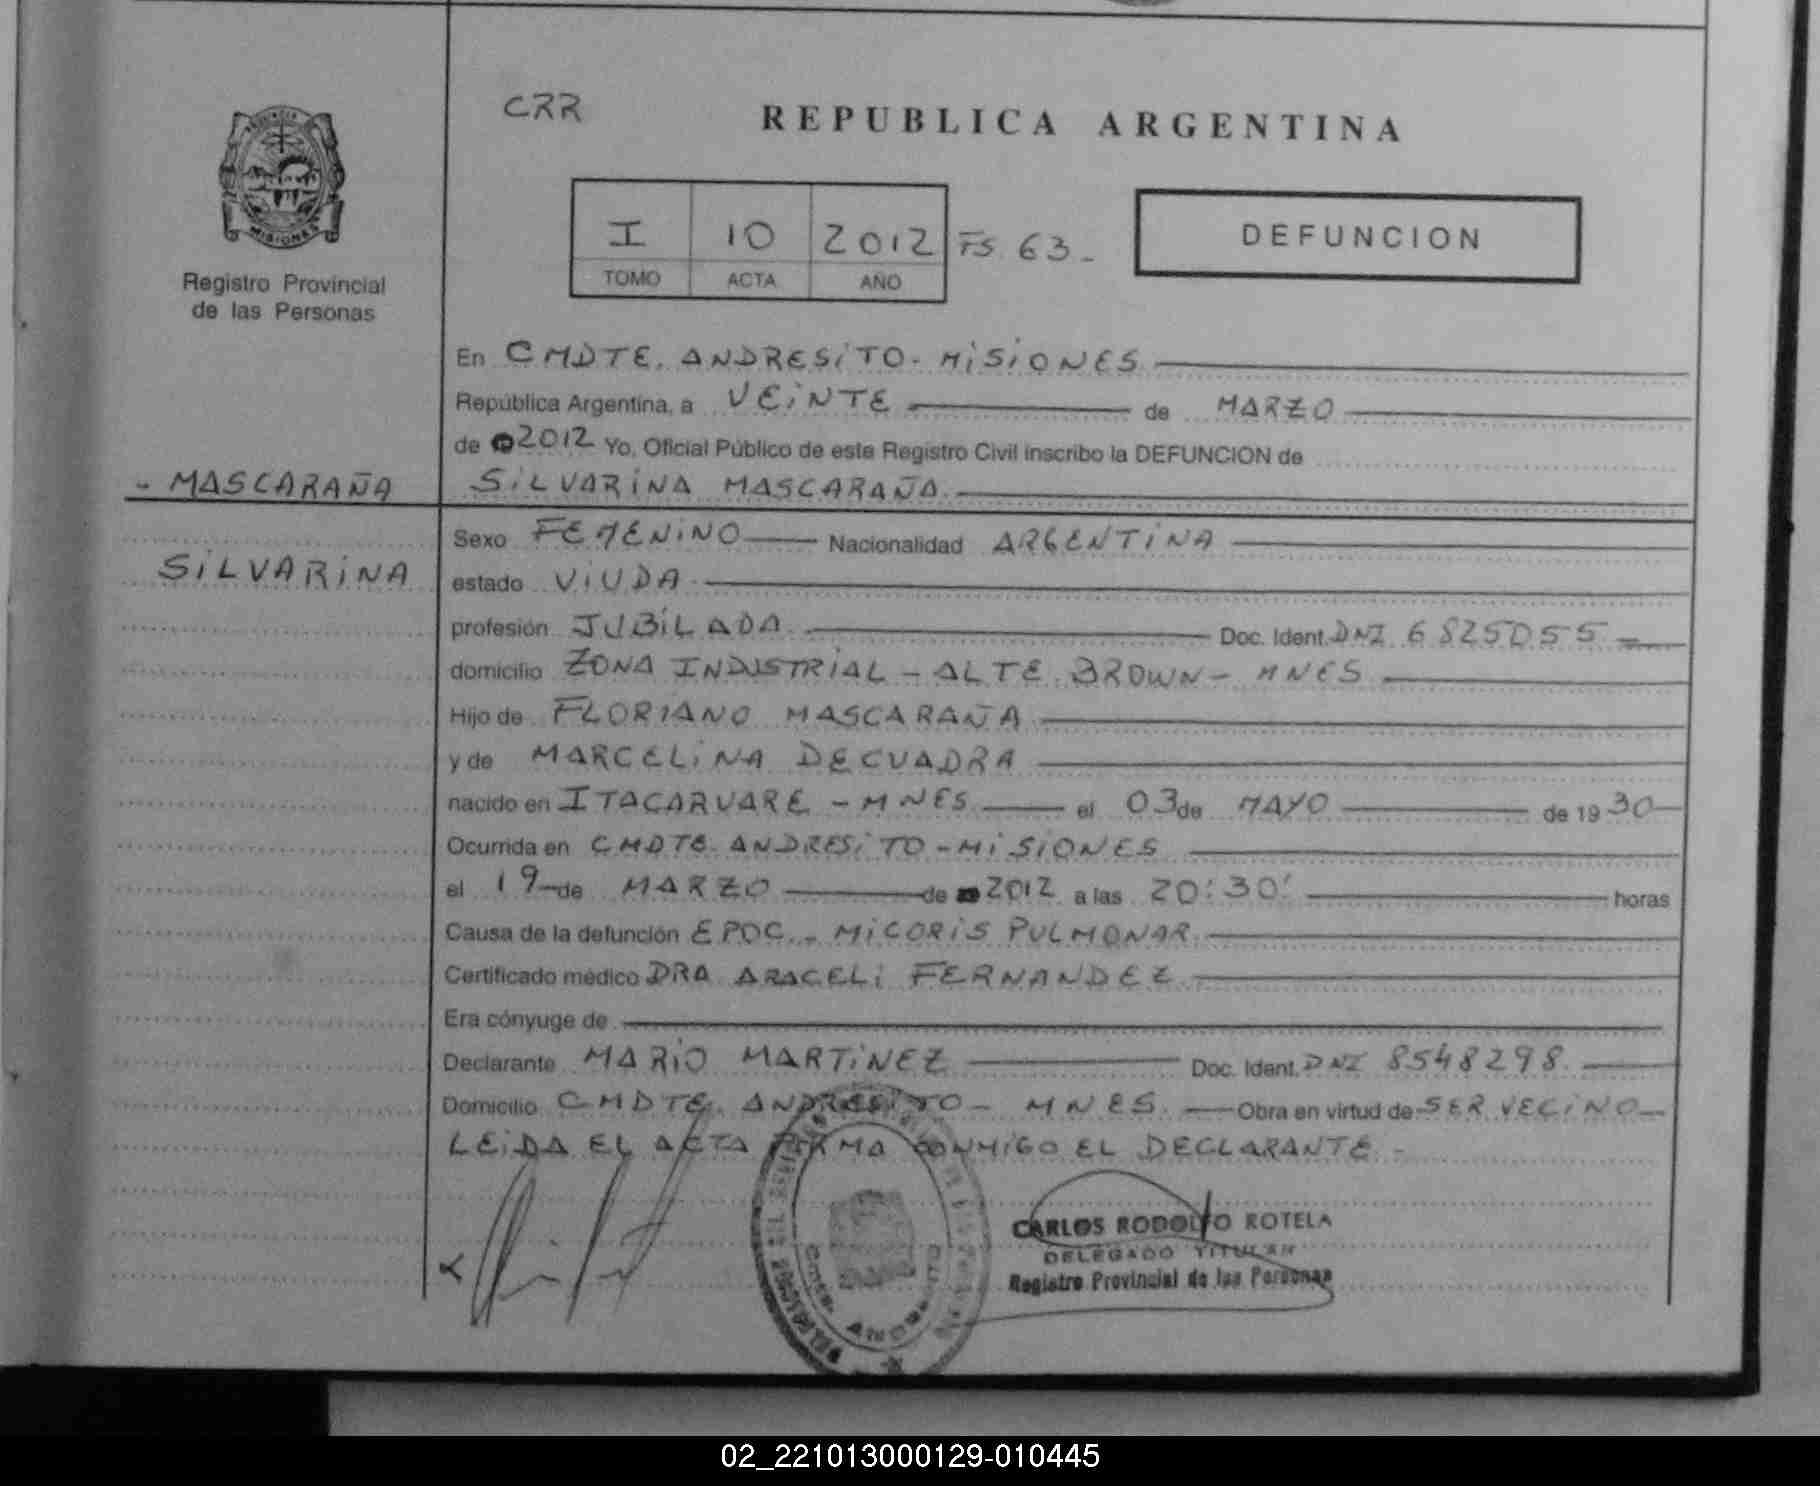 CRR
REPUBLICA ARGENTINA
MISIONES
Registro Provincial
de las Personas
I 10 2012 FS. 63.-
TOMO ACTA AÑO
DEFUNCION
En CMDTE. ANDRESITO - MISIONES
República Argentina, a VEINTE de MARZO
de 2012 Yo, Oficial Público de este Registro Civil inscribo la DEFUNCION de
- MASCARAÑA
SILVARINA MASCARAÑA.
SILVARINA
Sexo FEMENINO Nacionalidad ARGENTINA
estado VIUDA
profesión JUBILADA Doc. Ident. DNI 6825055
domicilio ZONA INDUSTRIAL - ALTE BROWN - MNES
Hijo de FLORIANO MASCARAÑA
y de MARCELINA DECUADRA
nacido en ITACARUARE - MNES el 03 de MAYO de 1930
Ocurrida en CMDTE. ANDRESITO - MISIONES
el 19 de MARZO de 2012 a las 20:30' horas
Causa de la defunción EPOC.- MICORIS PULMONAR
Certificado médico DRA ARACELI FERNANDEZ
Era cónyuge de
Declarante MARIO MARTINEZ Doc. Ident. DNI 8548298
Domicilio CMDTE. ANDRESITO - MNES. Obra en virtud de SER VECINO
LEIDA EL ACTA FIRMA CONMIGO EL DECLARANTE.-
CARLOS RODOLFO ROTELA
DELEGADO TITULAR
Registro Provincial de las Personas
02_221013000129-010445